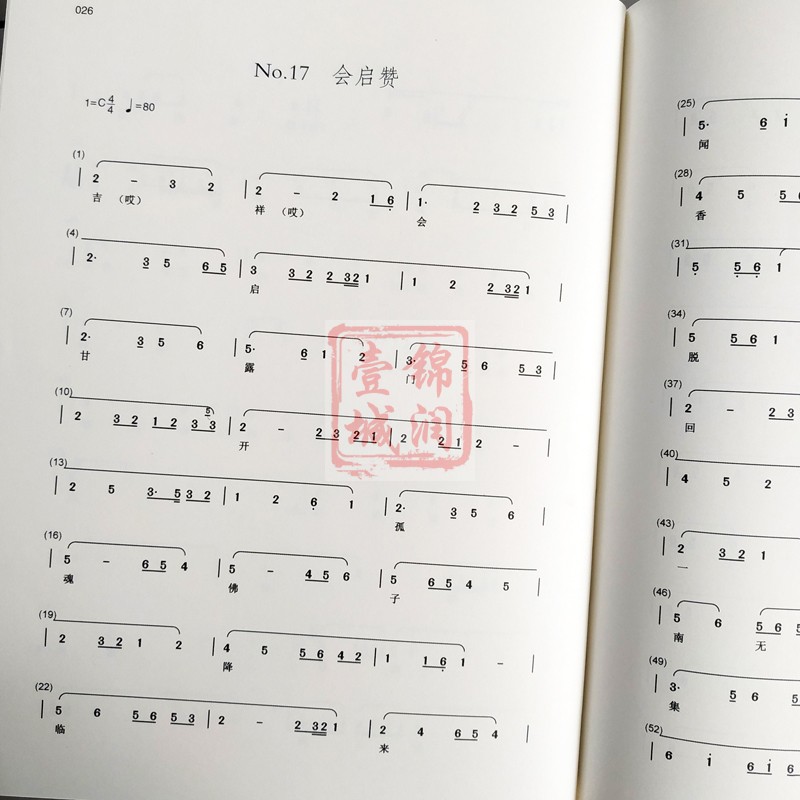 026
No.17 会启赞
1=C 4/4 ♩=80
(1)
2 – 3 2 | 2 – 2 1 6 | 1· 2 3 2 5 3
吉 (哎) 祥 (哎) 会
(4)
2· 3 5 6 5 | 3 3 2 2 3 2 1 | 1 2 2 3 2 1
启
(7)
2· 3 5 6 | 5· 6 1 2 | 3· 5 6 5 3
甘 露 门
(10)
2 3 2 1 2 3 5 3 | 2 – 2 3 2 1 | 2 2 1 2 –
开
(13)
2 5 3· 5 3 2 | 1 2 6 1 | 2· 3 5 6
孤
(16)
5 – 6 5 4 | 5 – 4 5 6 | 5 6 5 4 5
魂 佛 子
(19)
2 3 2 1 2 | 4 5 5 6 4 2 | 1 1 6 1 –
降
(22)
5 6 5 6 5 3 | 2 – 2 3 2 1 | 2 4 6 5 4
临 来
壹城
锦润
(25)
5· 6 i
闻
(28)
4 5 5
香
(31)
5 5 6 1
(34)
5 5 6
脱
(37)
2 – 2 3
回
(40)
4 5 2
(43)
2 3 2 1
一
(46)
5 6 5 6 5
南 无
(49)
3· 5 6 5
集
(52)
6 i 6 i 6 5